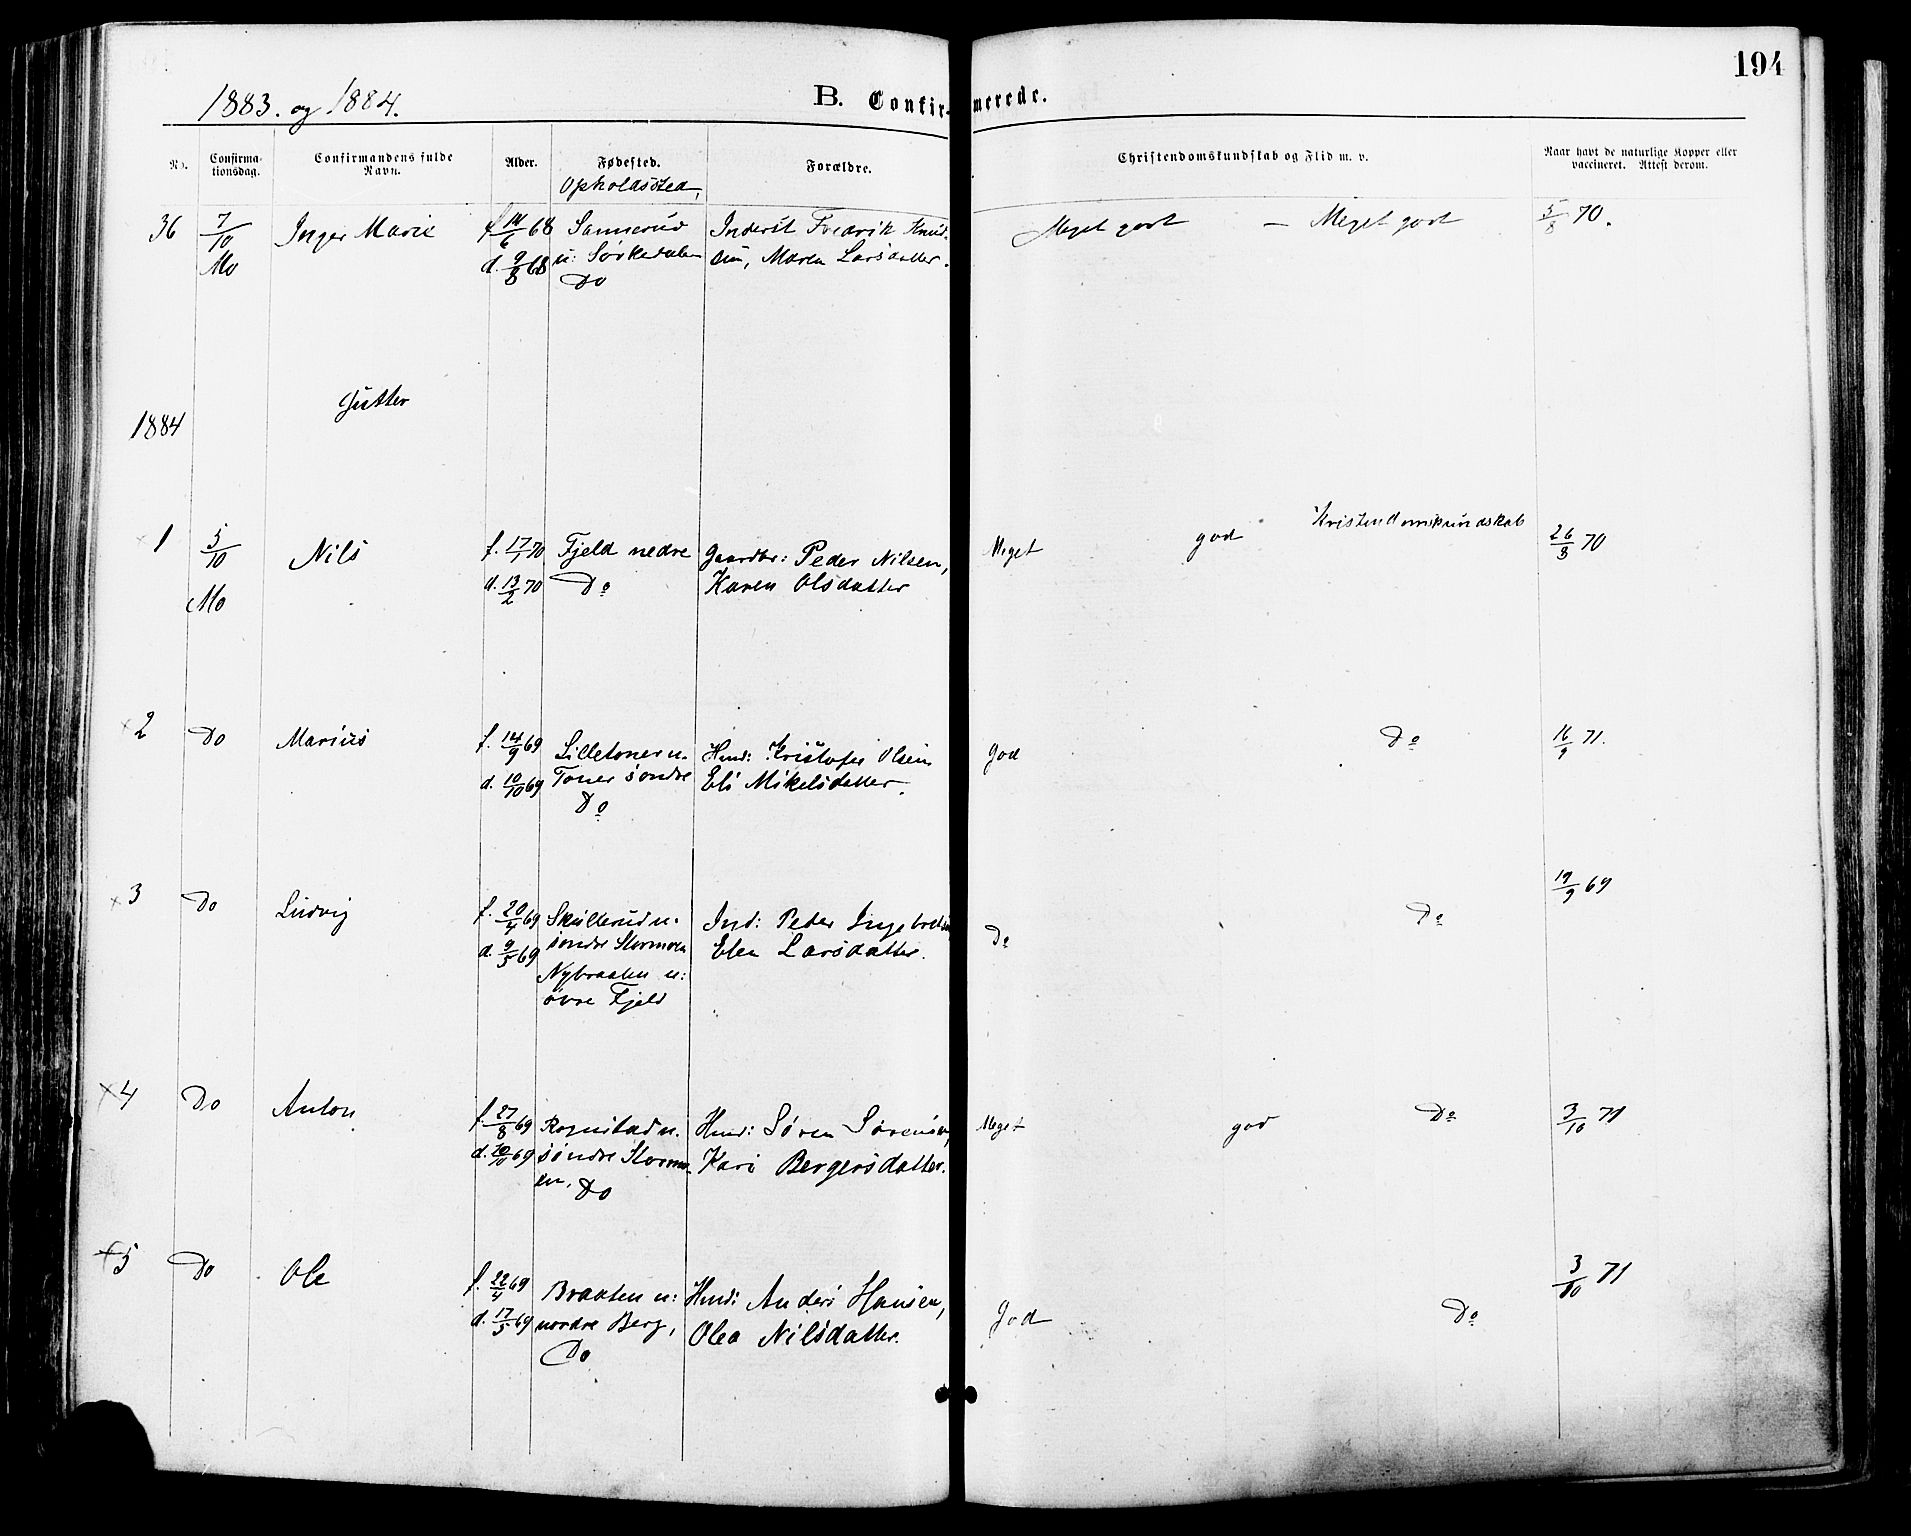 194
1883. og 1884.
B. Confirmerede.
No.
Confirma-
tionsdag.
Confirmandens fulde
Navn.
Alder.
Fødested.
Opholdssted,
Forældre.
Christendomskundskab og Flid m. v.
Naar havt de naturlige Kopper eller
vaccineret. Attest derom.
36 7/10 Inger Marie f 14/6 68 Sannerud Inderst Fredrik Knud- Meget godt — Meget godt 5/8 70.
Mo d. 9/8 68 u: Sørkedalen sen, Maren Larsdatter.
Do
1884 Gutter
1 5/10 Nils f. 17/1 70 Fjeld nedre Gaardbr: Peder Nilsen, Meget god Kristendomskundskab 26/8 70
Mo d. 13/2 70 Do Karen Olsdatter
2 Do Marius f. 14/9 69 Lilletoner u. Husm: Kristofer Olsen God Do 16/9 71.
d. 10/10 69 Toner søndre Eli Mikelsdatter.
Do
3 Do Ludvig f. 20/4 69 Skullerud u. Ind: Peder Ingebretsen Do Do 19/9 69
d. 9/5 69 søndre Stormoen Elen Larsdatter.
Nybraaten u:
øvre Fjeld
4 Do Anton f. 27/8 69 Rognstad u. Husm: Søren Sørensen, Meget god Do 3/10 71
d. 10/10 69 søndre Stormo- Kari Bergersdatter.
en, Do
5 Do Ole f. 22/4 69 Braaten u: Husm: Anders Hansen, God Do 3/10 71
d. 17/5 69 nordre Berg, Olea Nilsdatter.
Do